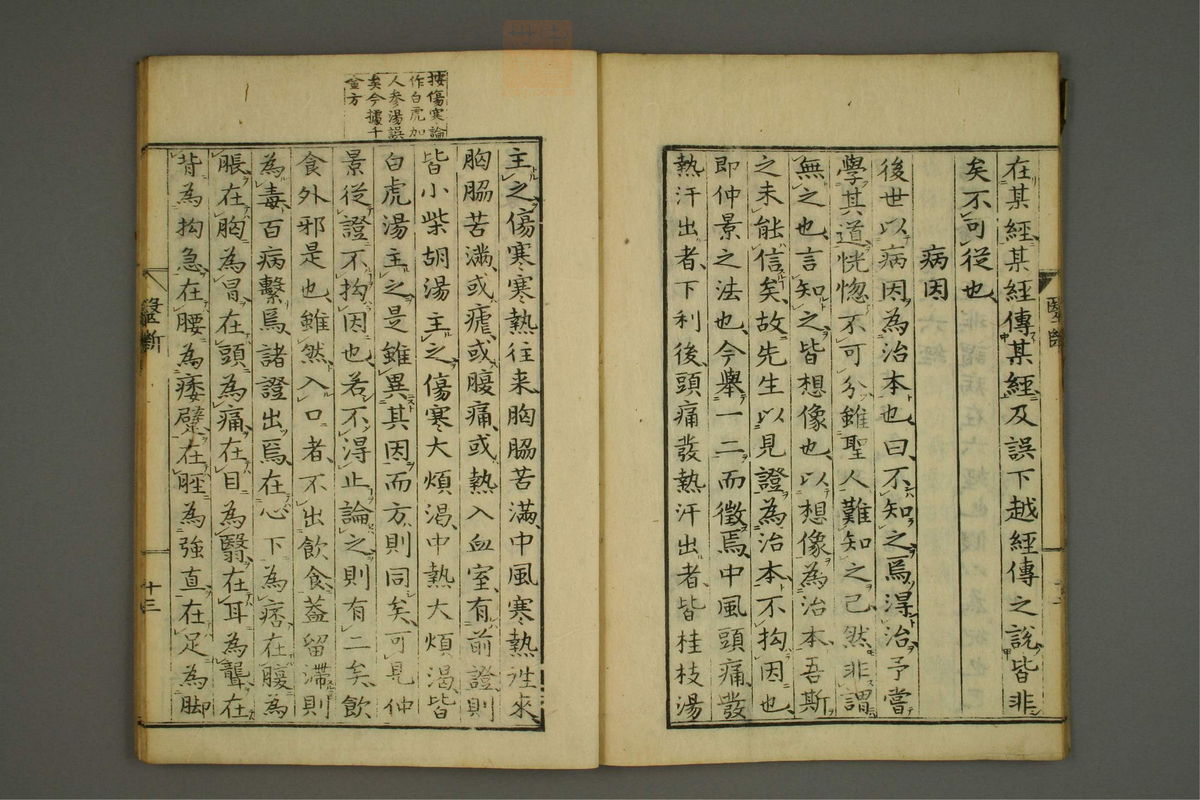 在某經某經傳某經及誤下越經傳之說皆非
矣不可從也
病因
後世以病因為治本也曰不知之焉得治予嘗
學其道恍惚不可分雖聖人難知之已然非謂
無之也言知之皆想像也以想像為治本吾斯
之未能信矣故先生以見證為治本不拘因也
即仲景之法也今舉一二而徵焉中風頭痛發
熱汗出者下利後頭痛發熱汗出者皆桂枝湯
醫斷
按傷寒論
作白虎加
人參湯誤
矣今據千
金方
主之傷寒寒熱往来胸脇苦滿中風寒熱往來
胸脇苦滿或瘧或腹痛或熱入血室有前證則
皆小柴胡湯主之傷寒大煩渴中熱大煩渴皆
白虎湯主之是雖異其因而方則同矣可見仲
景從證不拘因也若不得止論之則有二矣飲
食外邪是也雖然入口者不出飲食蓋留滯則
為毒百病繫焉諸證出焉在心下為痞在腹為
脹在胸為冒在頭為痛在目為翳在耳為聾在
背為拘急在腰為痿躄在脛為強直在足為脚
醫斷
十三